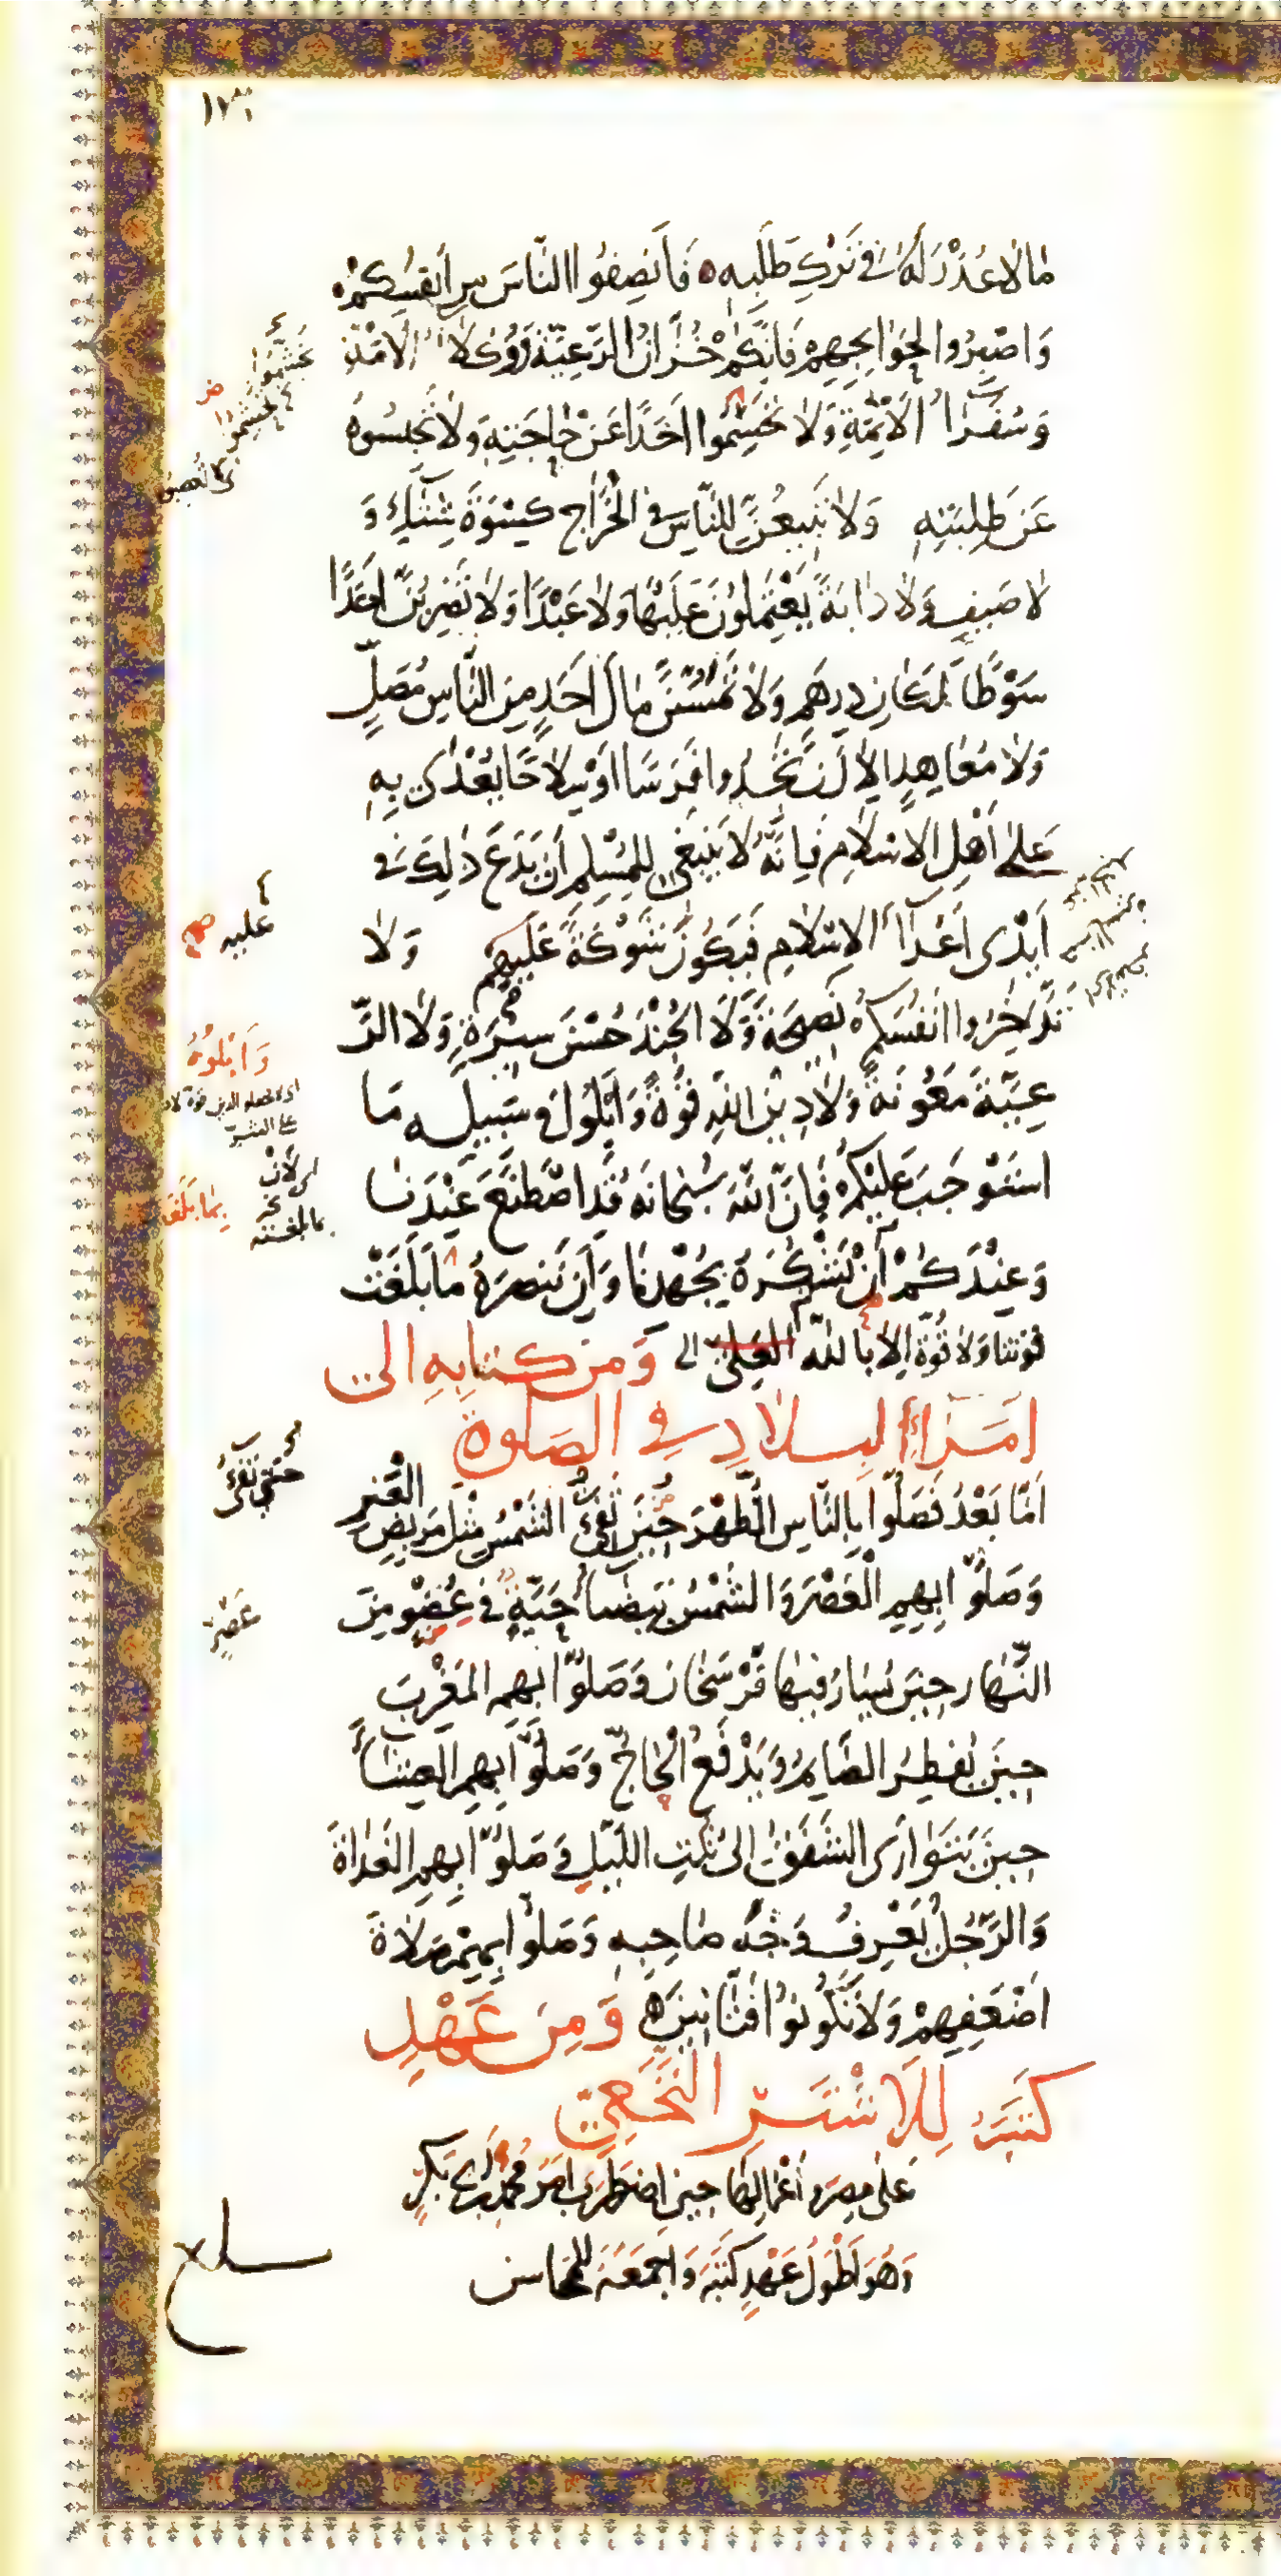 مَا لَا عُذْرَ لَهُ فِي تَرْكِ طَلَبِهِ ه فَأَنْصِفُوا النَّاسَ مِن أَنْفُسِكُمْ
وَاصْبِرُوا لِحَوَائِجِهِمْ فَإِنَّكُمْ خُزَّانُ الرَّعِيَّةِ وَوُكَلَاءُ الْأُمَّةِ
وَسُفَرَاءُ الْأَئِمَّةِ وَلَا تَحْشِمُوا أَحَدًا عَنْ حَاجَتِهِ وَلَا تَحْبِسُوهُ
عَن طَلِبَتِهِ وَلَا تَبِيعُنَّ لِلنَّاسِ فِي الْخَرَاجِ كِسْوَةَ شِتَاءٍ وَ
لَا صَيْفٍ وَلَا دَابَةً يَعْتَمِلُونَ عَلَيْهَا وَلَا عَبْدًا وَلَا تَضْرِبُنَّ أَحَدًا
سَوْطًا لِمَكَانِ دِرهَمٍ وَلَا تَمَسُّنَّ مَالَ أَحَدٍ مِنَ النَّاسِ مُصَلٍّ
وَلَا مُعَاهِدٍ إِلَّا أَن تَجِدُوا فَرَسًا أَوْ سِلَاحًا يُعْدَى بِهِ
عَلَى أَهْلِ الْإِسْلَامِ فَإِنَّهُ لَا يَنْبَغِي لِلْمُسْلِمِ أَن يَدَعَ ذٰلِكَ فِي
أَيْدِي أَعْدَاءِ الْإِسْلَامِ فَيَكُونَ شَوْكَةً عَلَيْهِمْ وَلَا
تَدَّخِرُوا أَنْفُسَكُمْ نَصِيحَةً وَلَا الْجُنْدَ حُسْنَ سِيرَةٍ وَلَا الرَّ
عِيَّةَ مَعُونَةً وَلَا دِينَ اللهِ قُوَّةً وَأَبْلُوا فِي سَبِيلِه مَا
اسْتَوْجَبَ عَلَيْكُمْ فَإِنَّ اللهَ سُبْحَانَهُ قَدِ اصْطَنَعَ عِنْدَنَا
وَعِنْدَكُمْ أَنْ نَشْكُرَهُ بِجُهْدِنَا وَأَن نَنْصُرَهُ مَا بَلَغَتْ
قُوَّتُنَا وَلَا قُوَّةَ إِلَّا بِاللهِ الْعَلِيِّ وَمِن كِتَابِهِ إِلَى
أُمَرَاءِ الْبِلَادِ فِي الصَّلٰوةِ
أَمَّا بَعْدُ فَصَلُّوا بِالنَّاسِ الظُّهْرَ حِينَ تَفِيءُ الشَّمْسُ مِثْلَ مَرْبِضِ الْعَنْزِ
وَصَلُّوا بِهِمِ الْعَصْرَ وَالشَّمْسُ بَيْضَاءُ حَيَّةٌ فِي عُضْوٍ مِنَ
النَّهَارِ حِينَ يُسَارُ فِيهَا فَرْسَخَانِ وَصَلُّوا بِهِمِ الْمَغْرِبَ
حِينَ يُفْطِرُ الصَّائِمُ وَيَدْفَعُ الْحَاجُّ وَصَلُّوا بِهِمِ الْعِشَاءَ
حِينَ يَتَوَارَى الشَّفَقُ إِلَى ثُلُثِ اللَّيْلِ وَصَلُّوا بِهِمِ الْغَدَاةَ
وَالرَّجُلُ يَعْرِفُ وَجْهَ صَاحِبِهِ وَصَلُّوا بِهِمْ صَلَاةَ
أَضْعَفِهِمْ وَلَا تَكُونُوا فَتَّانِينَ ه وَمِن عَهْدٍ
كَتَبَهُ لِلْأَشْتَرِ النَّخَعِيِّ
عَلَى مِصْرَ وَأَعْمَالِهَا حِينَ اضْطَرَبَ أَمْرُ مُحَمَّدِ بنِ أَبِي بَكْرٍ
وَهُوَ أَطْوَلُ عَهْدٍ كَتَبَهُ وَأَجْمَعُهُ لِلْمَحَاسِنِ
عليه صح
وَابْلُوْهُ
حتى تفيء